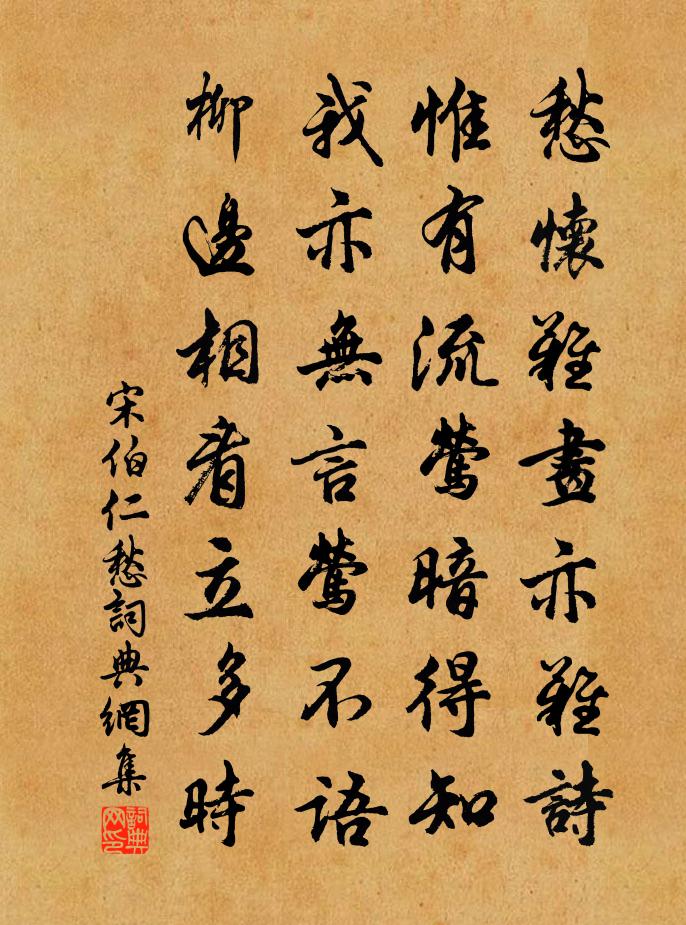 愁懷難畫亦難詩
惟有流鶯暗得知
我亦無言鶯不語
柳邊相看立多時
宋伯仁愁詞典網集
詞典网印